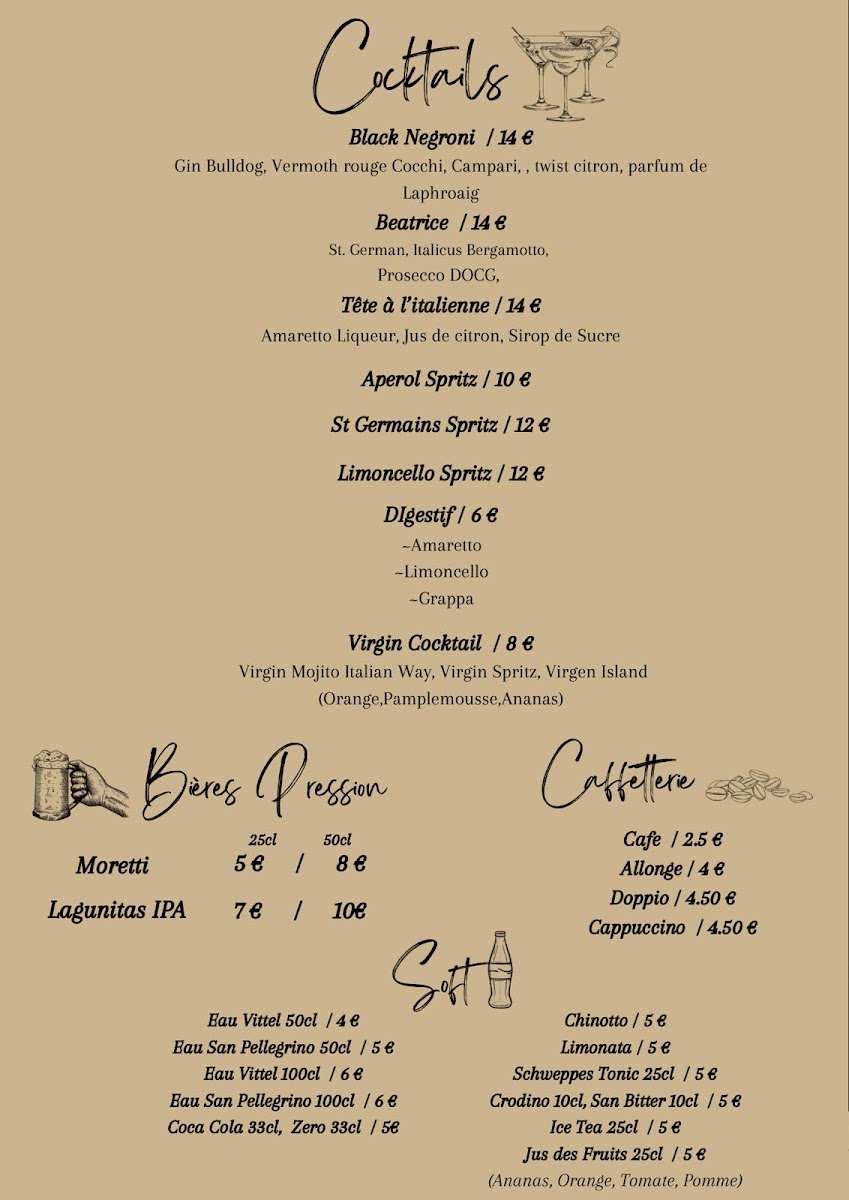 Cocktails
Black Negroni / 14 €
Gin Bulldog, Vermoth rouge Cocchi, Campari, , twist citron, parfum de
Laphroaig
Beatrice / 14 €
St. German, Italicus Bergamotto,
Prosecco DOCG,
Tête à l'italienne / 14 €
Amaretto Liqueur, Jus de citron, Sirop de Sucre
Aperol Spritz / 10 €
St Germains Spritz / 12 €
Limoncello Spritz / 12 €
DIgestif / 6 €
~Amaretto
~Limoncello
~Grappa
Virgin Cocktail / 8 €
Virgin Mojito Italian Way, Virgin Spritz, Virgen Island
(Orange,Pamplemousse,Ananas)
Bières Pression
25cl 50cl
Moretti 5 € / 8 €
Lagunitas IPA 7 € / 10€
Caffetterie
Cafe / 2.5 €
Allonge / 4 €
Doppio / 4.50 €
Cappuccino / 4.50 €
Soft
Eau Vittel 50cl / 4 €
Eau San Pellegrino 50cl / 5 €
Eau Vittel 100cl / 6 €
Eau San Pellegrino 100cl / 6 €
Coca Cola 33cl, Zero 33cl / 5€
Chinotto / 5 €
Limonata / 5 €
Schweppes Tonic 25cl / 5 €
Crodino 10cl, San Bitter 10cl / 5 €
Ice Tea 25cl / 5 €
Jus des Fruits 25cl / 5 €
(Ananas, Orange, Tomate, Pomme)